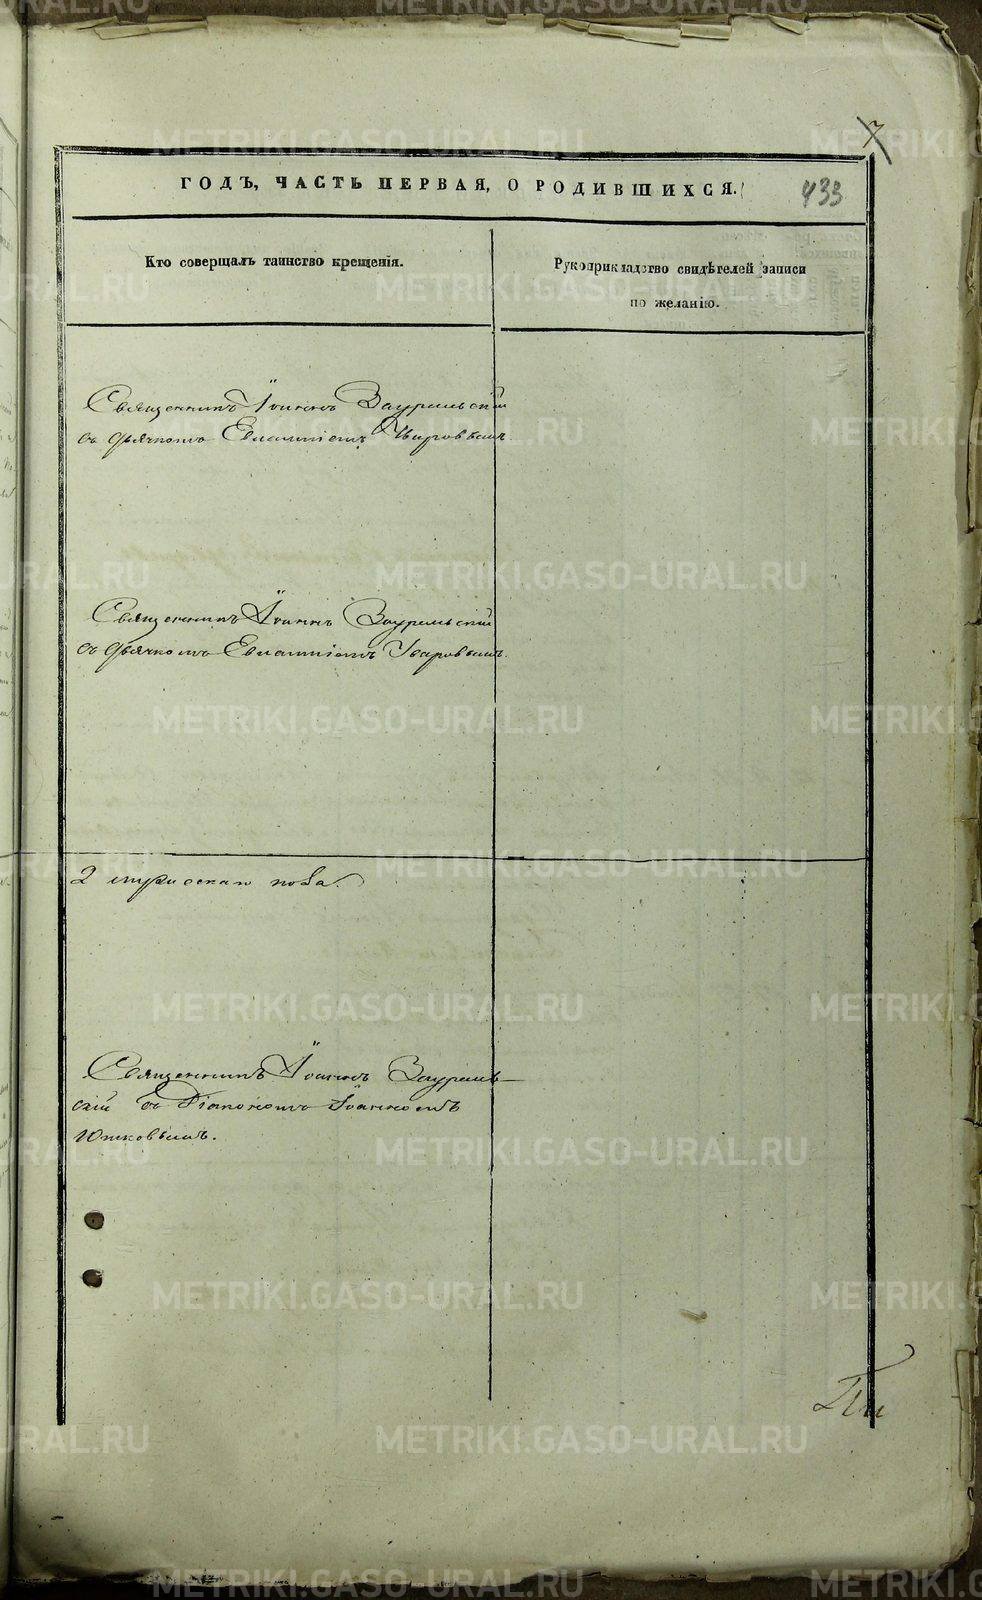 7
ГОДЪ, ЧАСТЬ ПЕРВАЯ, О РОДИВШИХСЯ.
433
Кто совершалъ таинство крещенія.
Рукоприкладство свидѣтелей записи
по желанію.
Священникъ Іоаннъ Зауральскій
съ дьячкомъ Евгаміемъ
Священникъ Іоаннъ Зауральскій
съ дьячкомъ
2 мужеска пола.
Священникъ Іоаннъ Заураль-
скій съ Діакономъ Іоанномъ
Юшковымъ.
METRIKI.GASO-URAL.RU